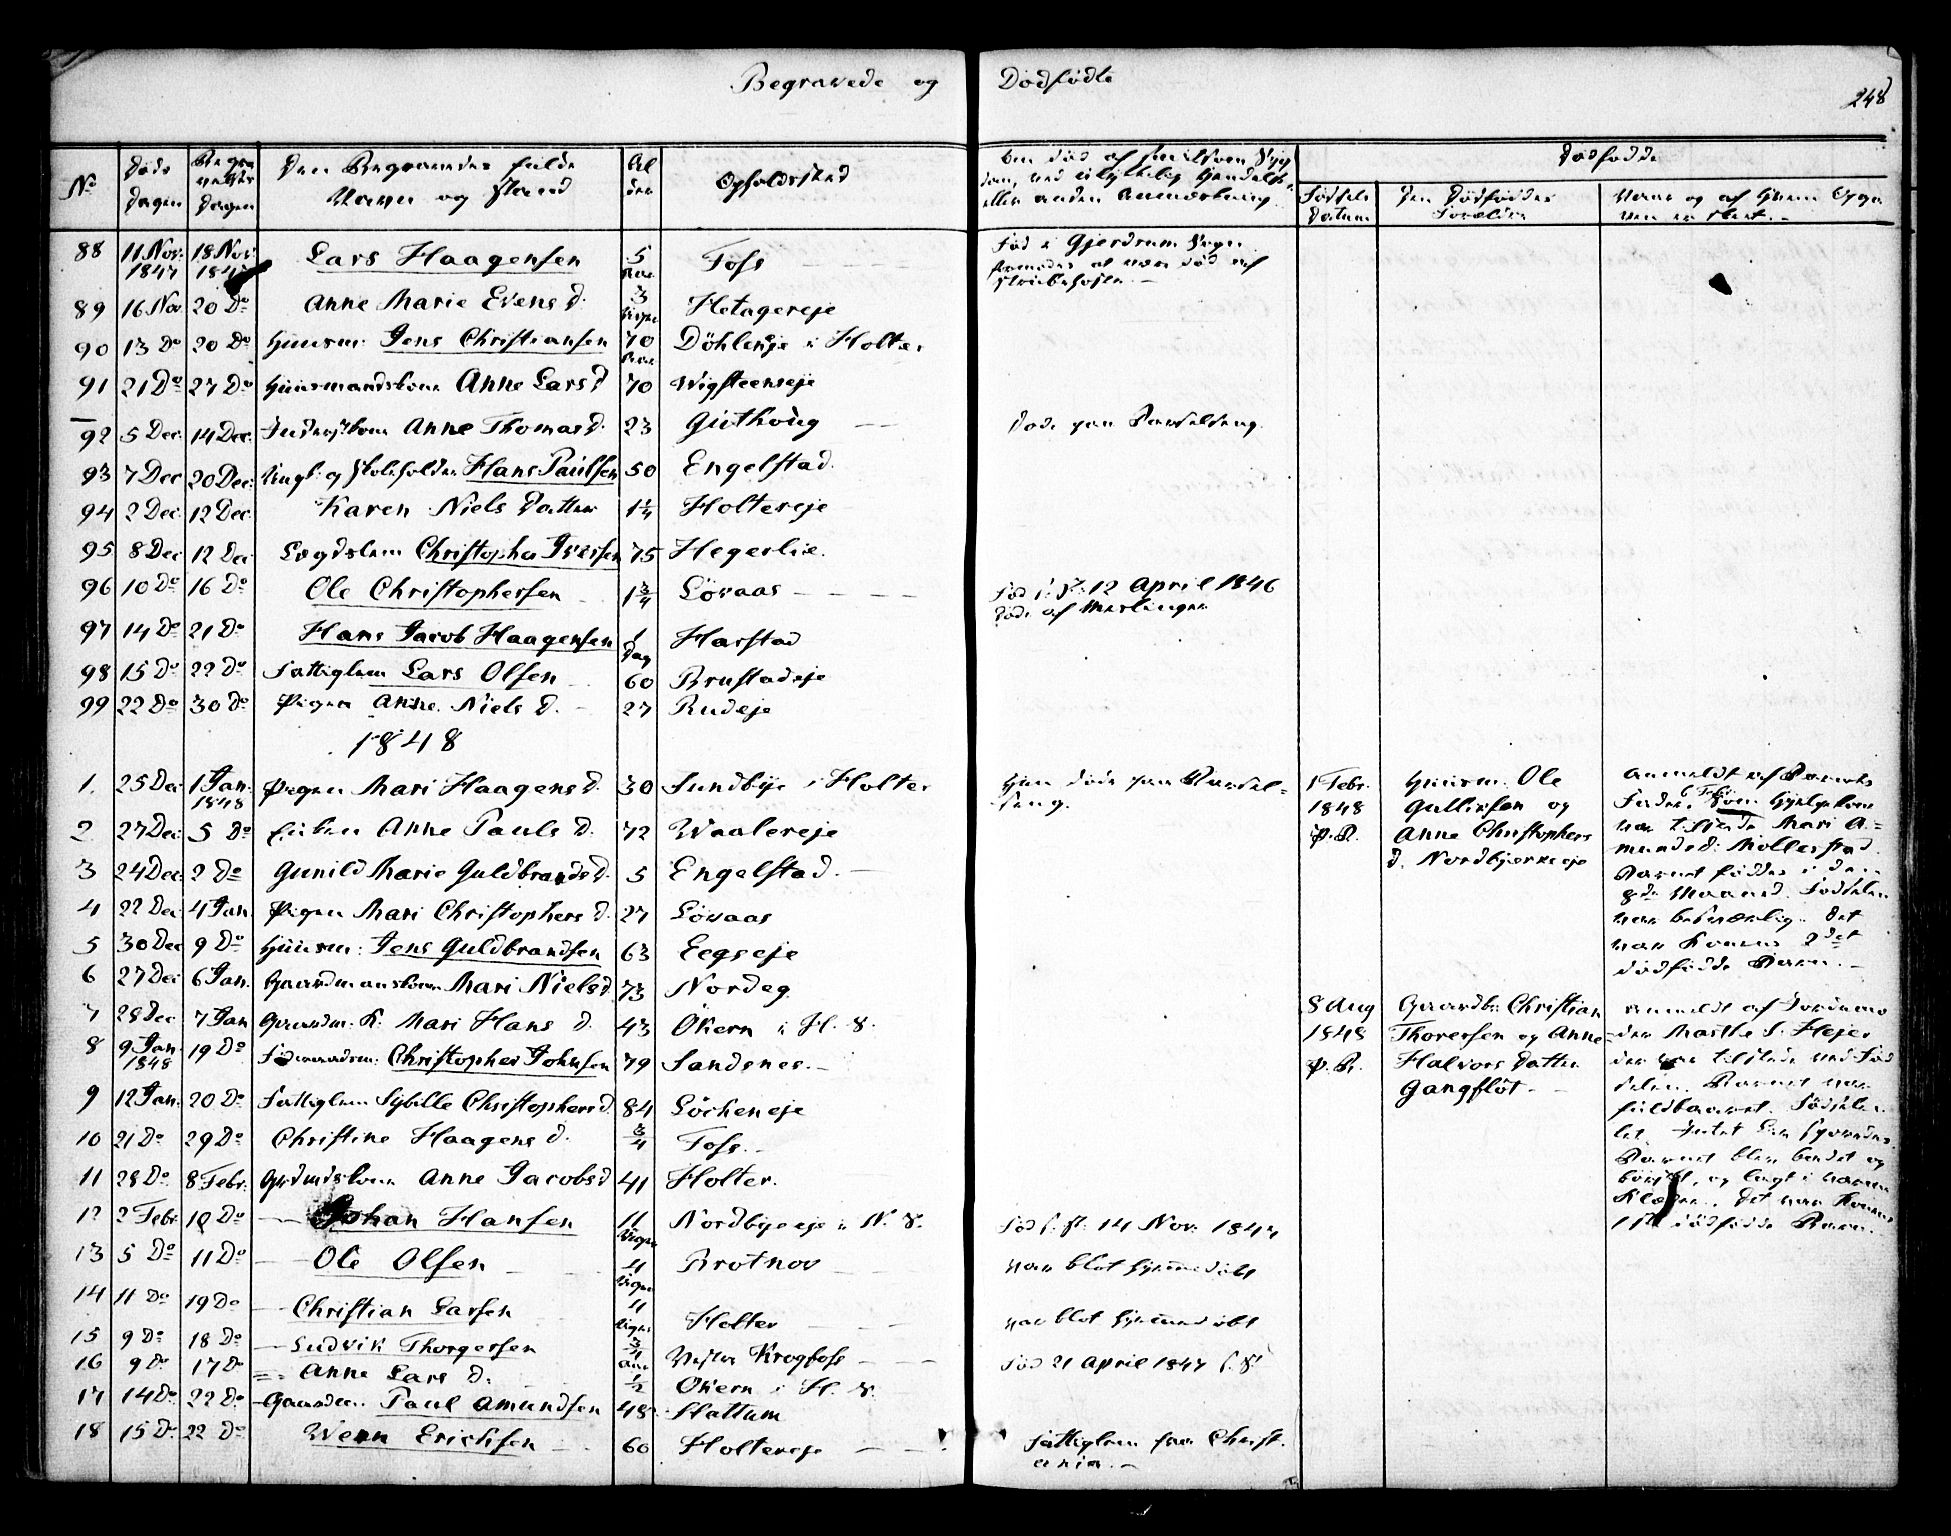 Begravede og Dødfødte
248
No
Døds Dagen
Begravelses Dagen
Den Begravedes fulde Navn og Stand
Alder
Opholdssted
Om død af smitsom Syg
dom, ved ulykkelig Hændelse
eller anden Anmærkning.
Dødfødde
Fødsels Datum
Den Dødføddes Forældre
Naar og af Hvem Opga
ven er skeet. -
88 11 Nov: 1847 18 Nov: 1847 Lars Haagensen 5 Tofs
Fød i Gjerdrum
formodes at være død af
89 16 Nov 20 Do Anne Marie Evens d. 3 Uger Hetagereje
90 13 Do 20 Do Huusm: Jens Christiansen 70 Döhleneje i Holter
91 21 Do 27 Do Huusmandskone Anne Lars d 70 Wigsteenseje
92 5 Dec. 14 Dec. Anne Thomasd. 23 Guthoug Døde paa Barselseng.
93 7 Dec 20 Dec. og Skoleholder Hans Paulsen 50 Engelstad.
94 2 Dec. 12 Dec. Karen Niels Datter 1¼ Holtereje
95 8 Dec 12 Dec Lægdslem Christopher Iversen 75 Hegerlie.
96 10 Do 16 Do Ole Christophersen 1¾ Lövaas Fød 12 April 1846
Døde af Mæslinger
97 14 Do 21 Do Hans Jacob Haagensen 1 Dag Harstad
98 15 Do 22 Do Fattiglem Lars Olsen 60 Brustadeje
99 22 Do 30 Do Pigen Anne Niels d. 27 Rudeje
1848
1. 25 Dec 1 Jan. 1848 Pigen Mari Haagens d. 30 Sundbye i Holter Hun døde paa Barsel=
seng.
2 27 Dec. 5 Do Enken Anne Pauls d. 72 Waalereje
3 24 Dec. 2 Do Gunild Marie Guldbrands d. 5 Engelstad.
4 22 Dec 4 Jan Pigen Mari Christophers d. 27 Lövaas
5 30 Dec 9 Do Huusm: Jens Guldbrandsen 63 Eegseje
6 27 Dec 6 Jan. Gaardmandskone Mari Nielsd 73 Nordeg
7 28 Dec 7 Jan Gaardm. K. Mari Hans d. 43 Okern i H. S.
8 9 Jan 1848 19 Do Christopher Johnsen 79 Sandsnes.
9 12 Jan. 20 Do Fattiglem Sybille Christophersd. 84 Löcheneje
10 21 Do 29 Do Christine Haagens d. ¾ Tofs.
11 28 Do 8 Febr. Anne Jacobsd 41 Holter.
12 2 Febr 10 Do Johan Hansen 11 Uger Nordbyeeje i N. S. Fød 14 Nov. 1847
13 5 Do 11 Do Ole Olsen 4 Uger Brotnov Var blot hjemmedøbt
14 11 Do 19 Do Christian Larsen 4 Uger Holter var blot hjemmedøbt
15 9 Do 18 Do Ludvik Thorgersen ¾ Aar Vester Krogfoss Fød 21 April 1847
16 9 Do 17 Do Anne Lars d. ½ Okern i H. S.
17 14 Do 22 Do Paul Amundsen 48 Hattum
18 15 Do 22 Do Wenn Erichsen 60 Holtereje Fattiglem fra Christ.
ania. -
1 Febr. 1848 p. R.
Huusm. Ole
Gulliksen og
Anne Christophers
d. Nordbyerneeje
Anmeldt af Barnets
Fader. Hjelpekone
var tilstede Mari A=
mundsd: Mollerstad
Barnet föddes i den
8de Maaned. Fødselen
var besværlig. Det
var Konens 2det
dødfødde Barn. -
8 Aug 1848 p. R.
Gaardbr: Christian
Thoresen og Anne
Halvors Datter
Gangflöt -
Anmeldt af Jordemo
der Marthe S. Hejer
der var tilstede ved Fød
selen. Barnet var
fuldbaaret. Fødselen
let. Intet
Barnet blev badet og
börstet, og lagt i varme
Klæder. Det var Konens
1ste dødfødde Barn.